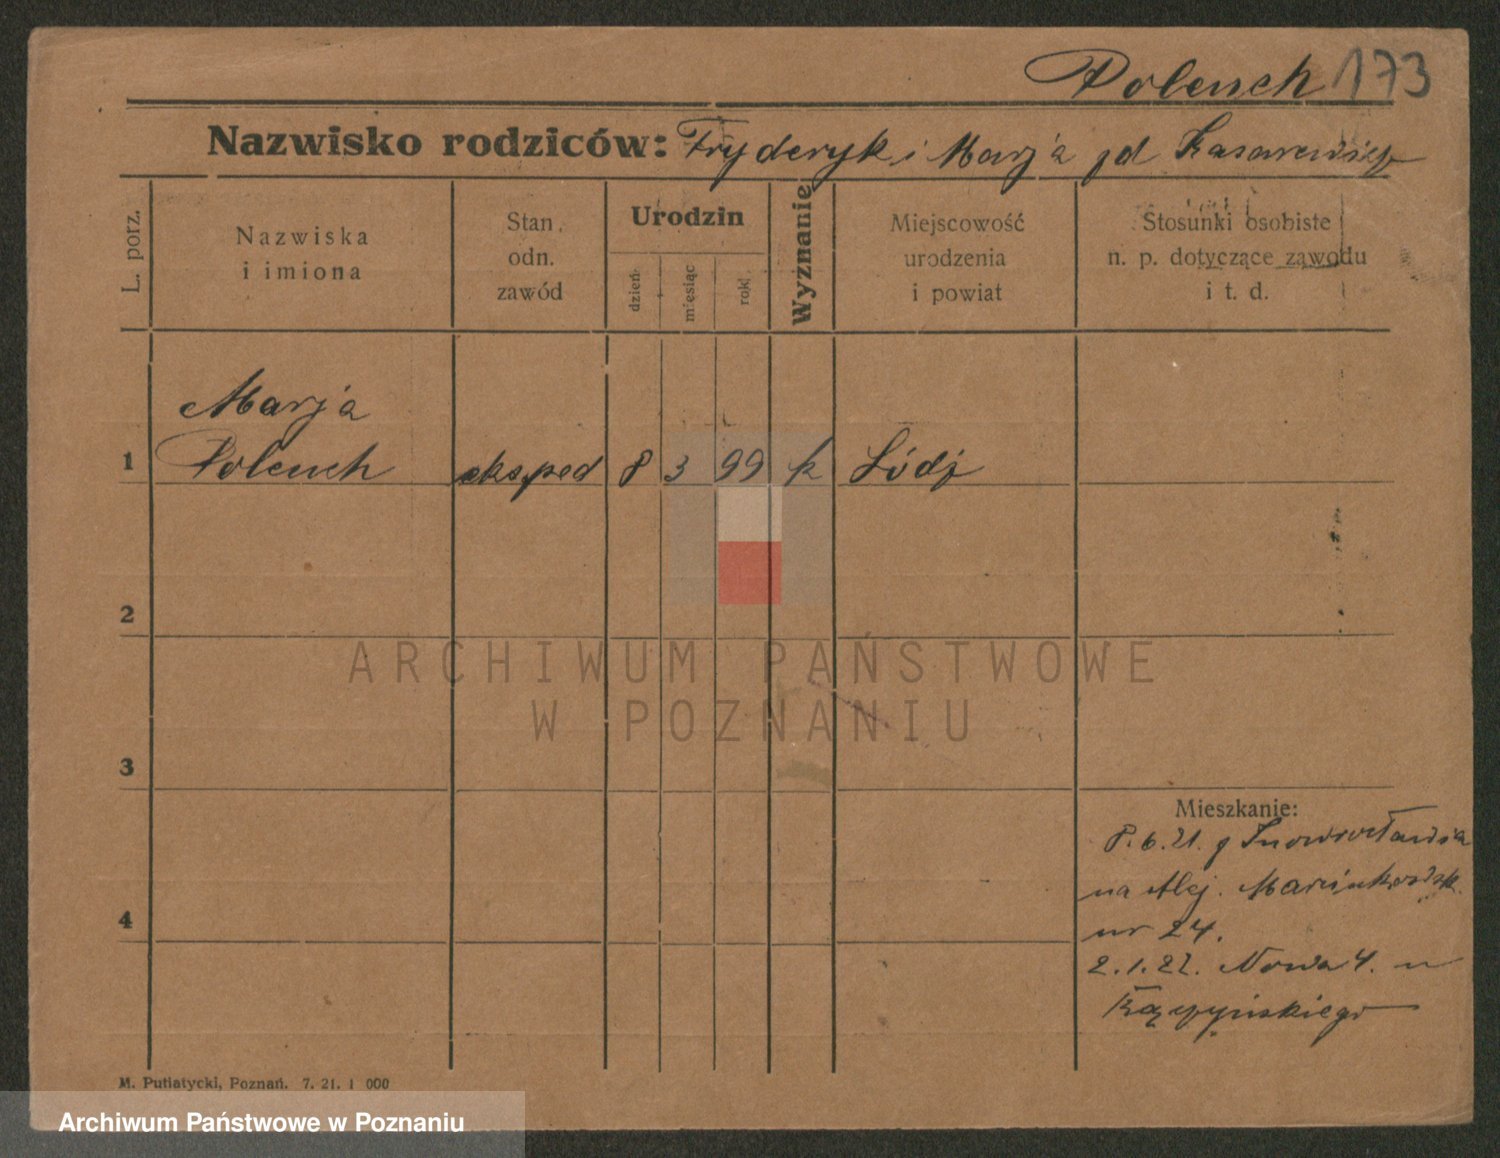 Polench 173
Nazwisko rodziców: Fryderyk i Marja
L. porz.
Nazwiska
i imiona
Stan
odn.
zawód
Urodzin
dzień
miesiąc
rok
Wyznanie
Miejscowość
urodzenia
i powiat
Stosunki osobiste
n. p. dotyczące zawodu
i t. d.
Marja
1 Polench eksped 8 3 99 k Łódź
2
ARCHIWUM PAŃSTWOWE
W POZNANIU
3
Mieszkanie:
8.6.21. z Inowrocławia
na Alej. Marcinkowsk.
4
nr 24.
2.1.22. Nowa 4. u
M. Putiatycki, Poznań. 7. 21. 1 000
Archiwum Państwowe w Poznaniu